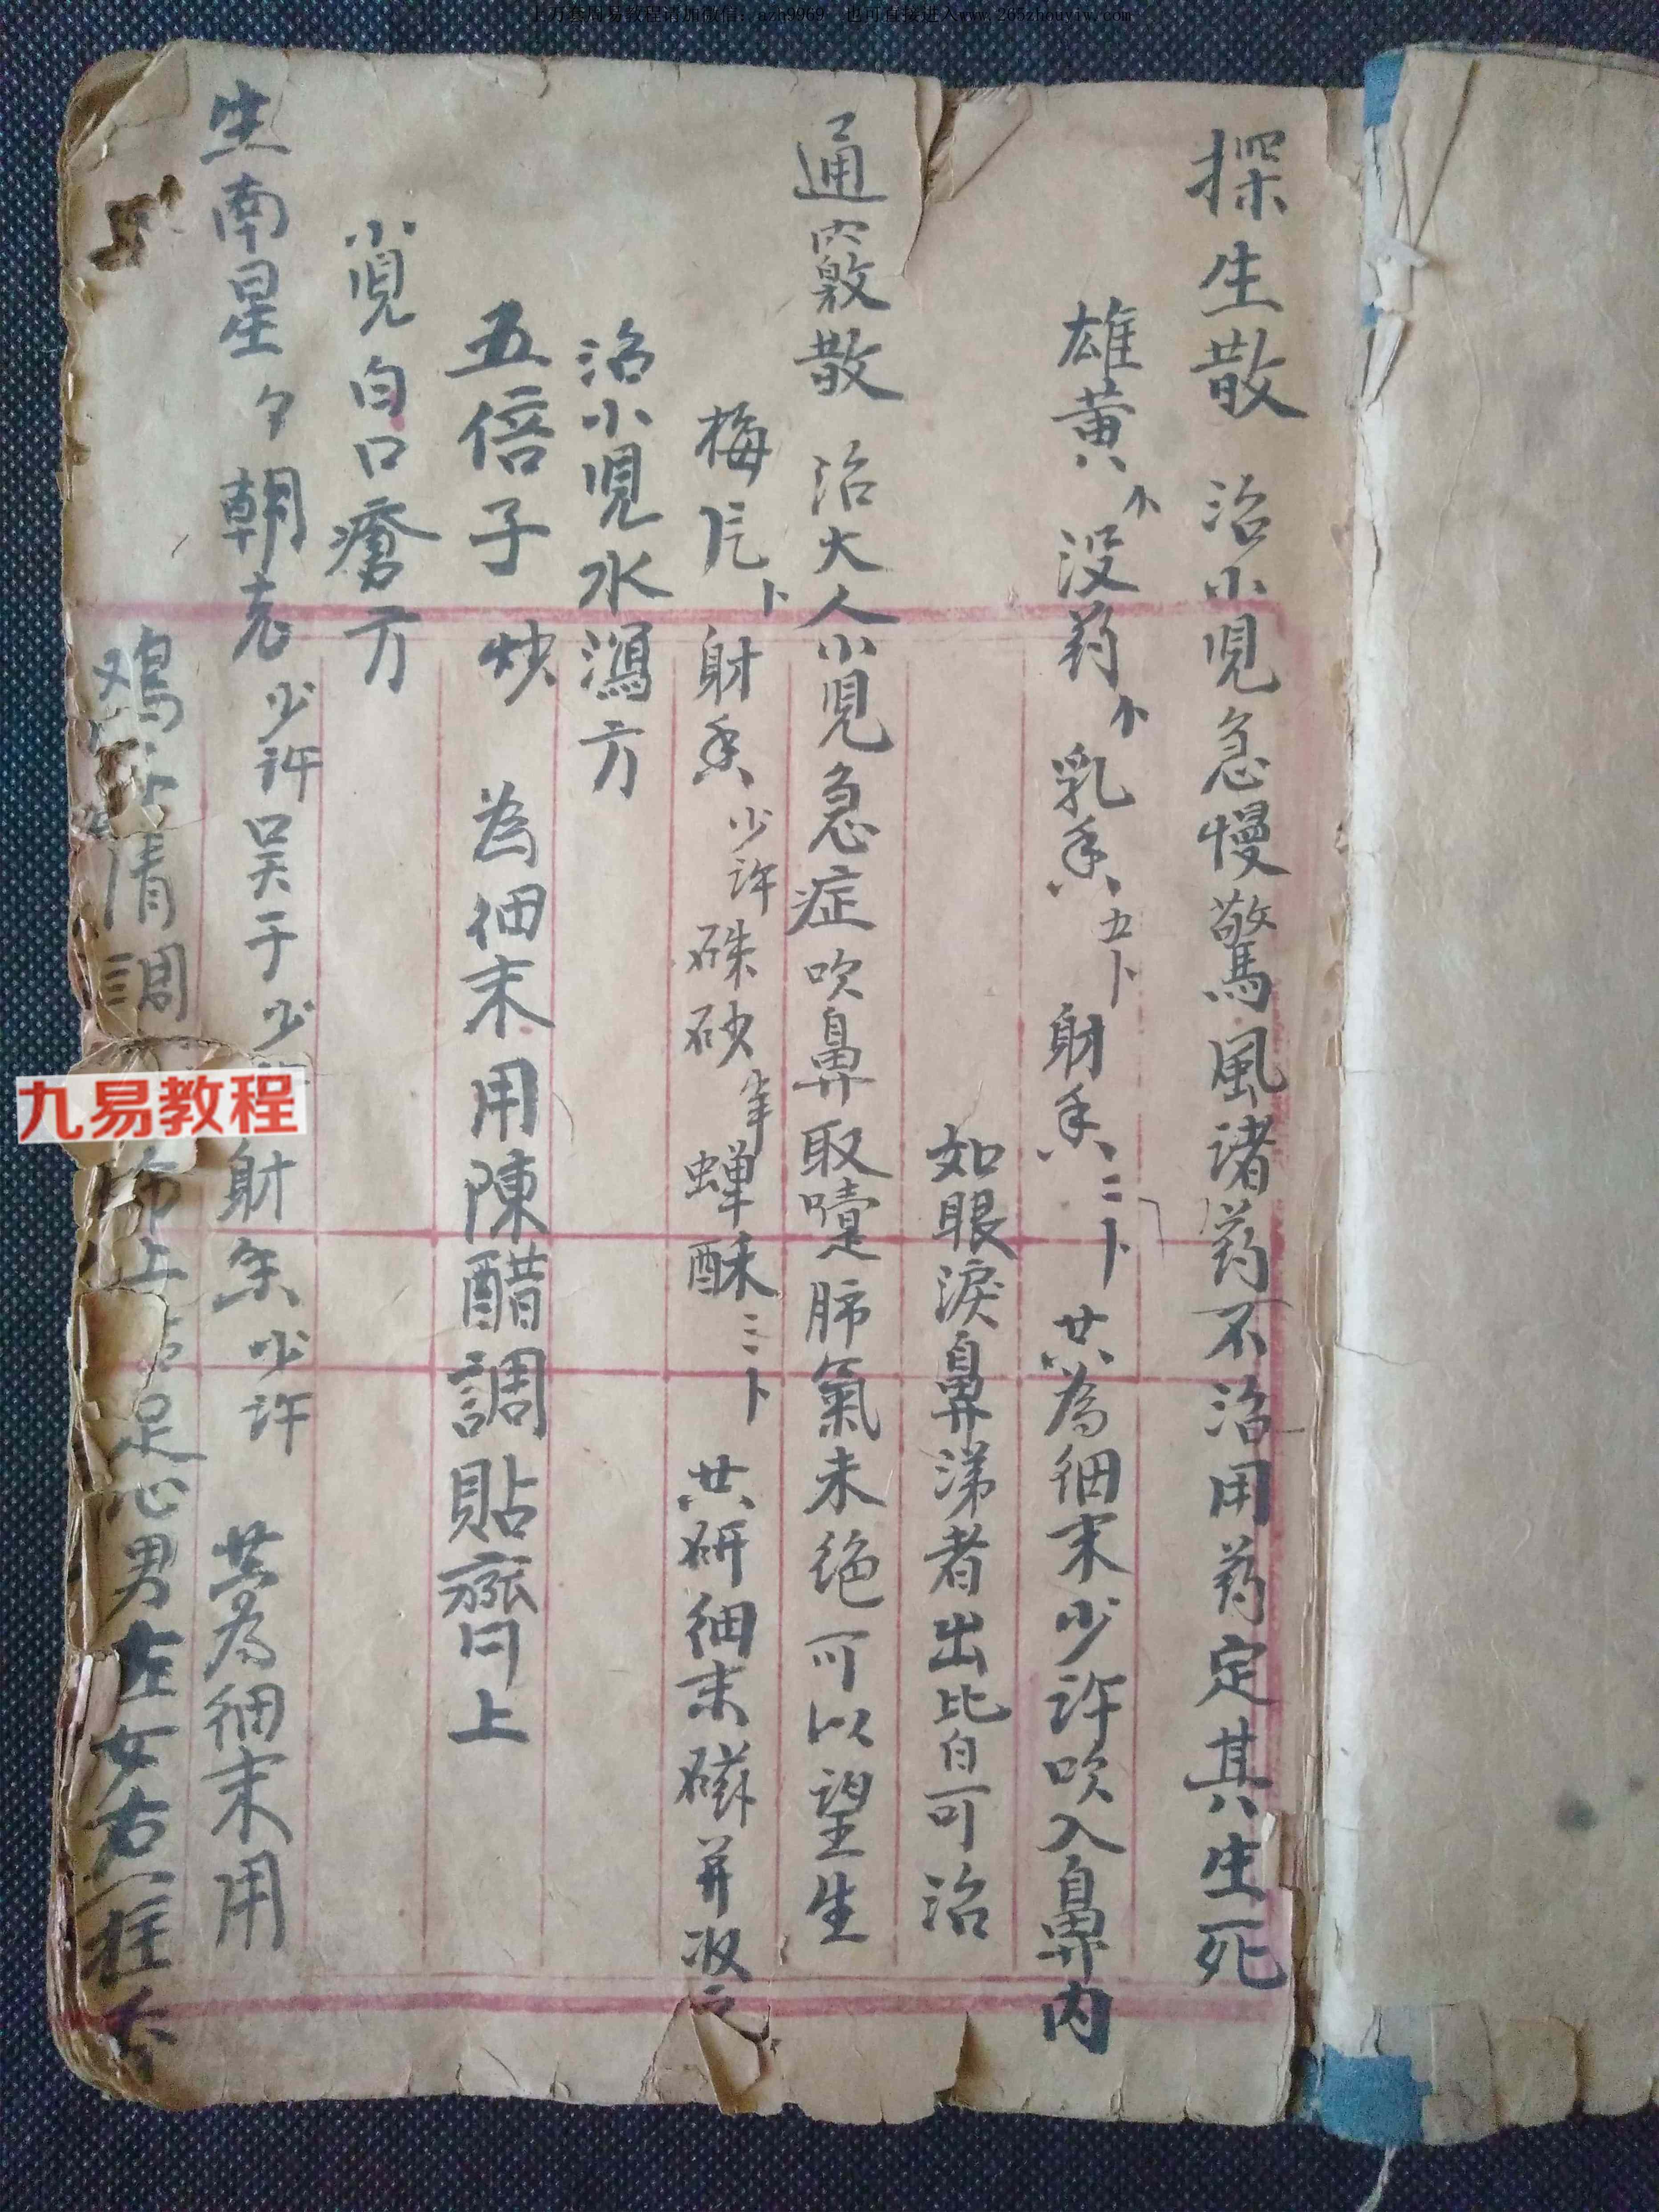 上万套周易教程请加微信：azh9969 也可直接进入www.265zhouyiw.com
探生散 治小児急慢驚風諸药不治用药定其生死
雄黄 没药 乳香 五卜 射香 二卜 共為细末少许吹入鼻内
如眼淚鼻涕者出皆可治
通竅散 治大人小児急症吹鼻取嚏肺氣未绝可以望生
梅片 卜 射香 少许 硃砂 蝉酥 三卜 共研细末磁并收之
治小児水瀉方
五倍子 炒 為细末用陳醋調貼臍上
小児白口瘡方
生南星 朝 少许 吴于 少许 射香 少许 共為细末用
鸡 清調 布上 足心男左女右一柱香
九易教程